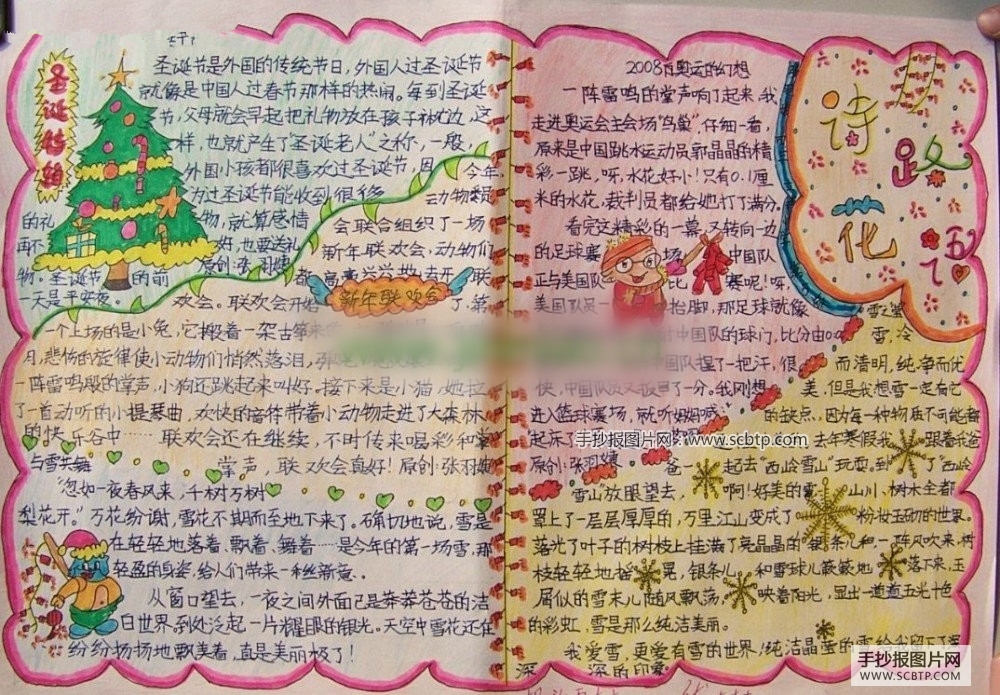 圣诞特辑
圣诞节是外国的传统节日，外国人过圣诞节
就像是中国人过春节那样的热闹。每到圣诞
节，父母就会早起把礼物放在孩子枕边，这
样，也就产生了“圣诞老人”之称，一般，
外国小孩都很喜欢过圣诞节，因
为过圣诞节能收到很多
的礼物，就算感情
再不好，也要送礼
物。圣诞节的前
一天是平安夜。
原创：张羽婕
新年联欢会
今年，
动物委员
会联合组织了一场
新年联欢会，动物们
都高高兴兴地去开联
欢会。联欢会开始了，第
一个上场的是小兔，它搬着一架古筝来
悲怖的旋律使小动物们悄然落泪，
一阵雷鸣般的掌声，小狗还跳起来叫好。接下来是小猫，她拉
了一首动听的小提琴曲，欢快的音符带着小动物走进了大森林
的快乐谷中……联欢会还在继续，不时传来喝彩和
掌声，联欢会真好！原创：张羽婕
与雪共舞
“忽如一夜春风来，千树万树
梨花开。”万花纷谢，雪花不期而至地下来了。确切地说，雪是
在轻轻地落着、飘着、舞着……是今年的第一场雪，那
轻盈的身姿，给人们带来一丝新意。
从窗口望去，一夜之间外面已是莽莽苍苍的洁
白世界，到处泛起一片耀眼的银光。天空中雪花还在
纷纷扬扬地飘美着，真是美丽极了！
2008 奥运的幻想
一阵雷鸣的掌声响了起来，我
走进奥运会主会场“鸟巢”，仔细一看，
原来是中国跳水运动员郭晶晶的精
彩一跳，呀，水花好小！只有0.1厘
米的水花，裁判员都给她打了满分。
看完这精彩的一幕，又转向一边
的足球赛场，中国队
正与美国队比赛呢！呀，
美国队员一抬脚，那足球就像
中国队的球门，比分由0
中国队捏了一把汗，很
快，中国队员又
了一分。我刚想
进入篮球赛场，就听妈妈喊
起床了
原创：张羽婕
诗路花
雪之莹
雪，冷
而清明，纯净而优
美，但是我想雪一定有它
的缺点，因为每一种物质不可能
去年寒假我跟着我爸
爸一起去“西岭雪山”玩耍，到了“西岭
雪山”放眼望去，啊！好美的雪，山川、树木全都
罩上了一层层厚厚的，万里江山变成了粉妆玉砌的世界。
落光了叶子的树枝上挂满了亮晶晶的银条儿和一阵风吹来，树
枝轻轻地摇晃，银条儿和雪球儿簌簌地落下来，玉
屑似的雪末儿随风飘荡，映着阳光，显出一道道五光十色
的彩虹，雪是那么纯洁美丽。
我爱雪，更爱有雪的世界！纯洁晶莹的雪给我留下了
深深的印象
手抄报图片网：www.scbtp.com
手抄报图片网
WWW.SCBTP.COM